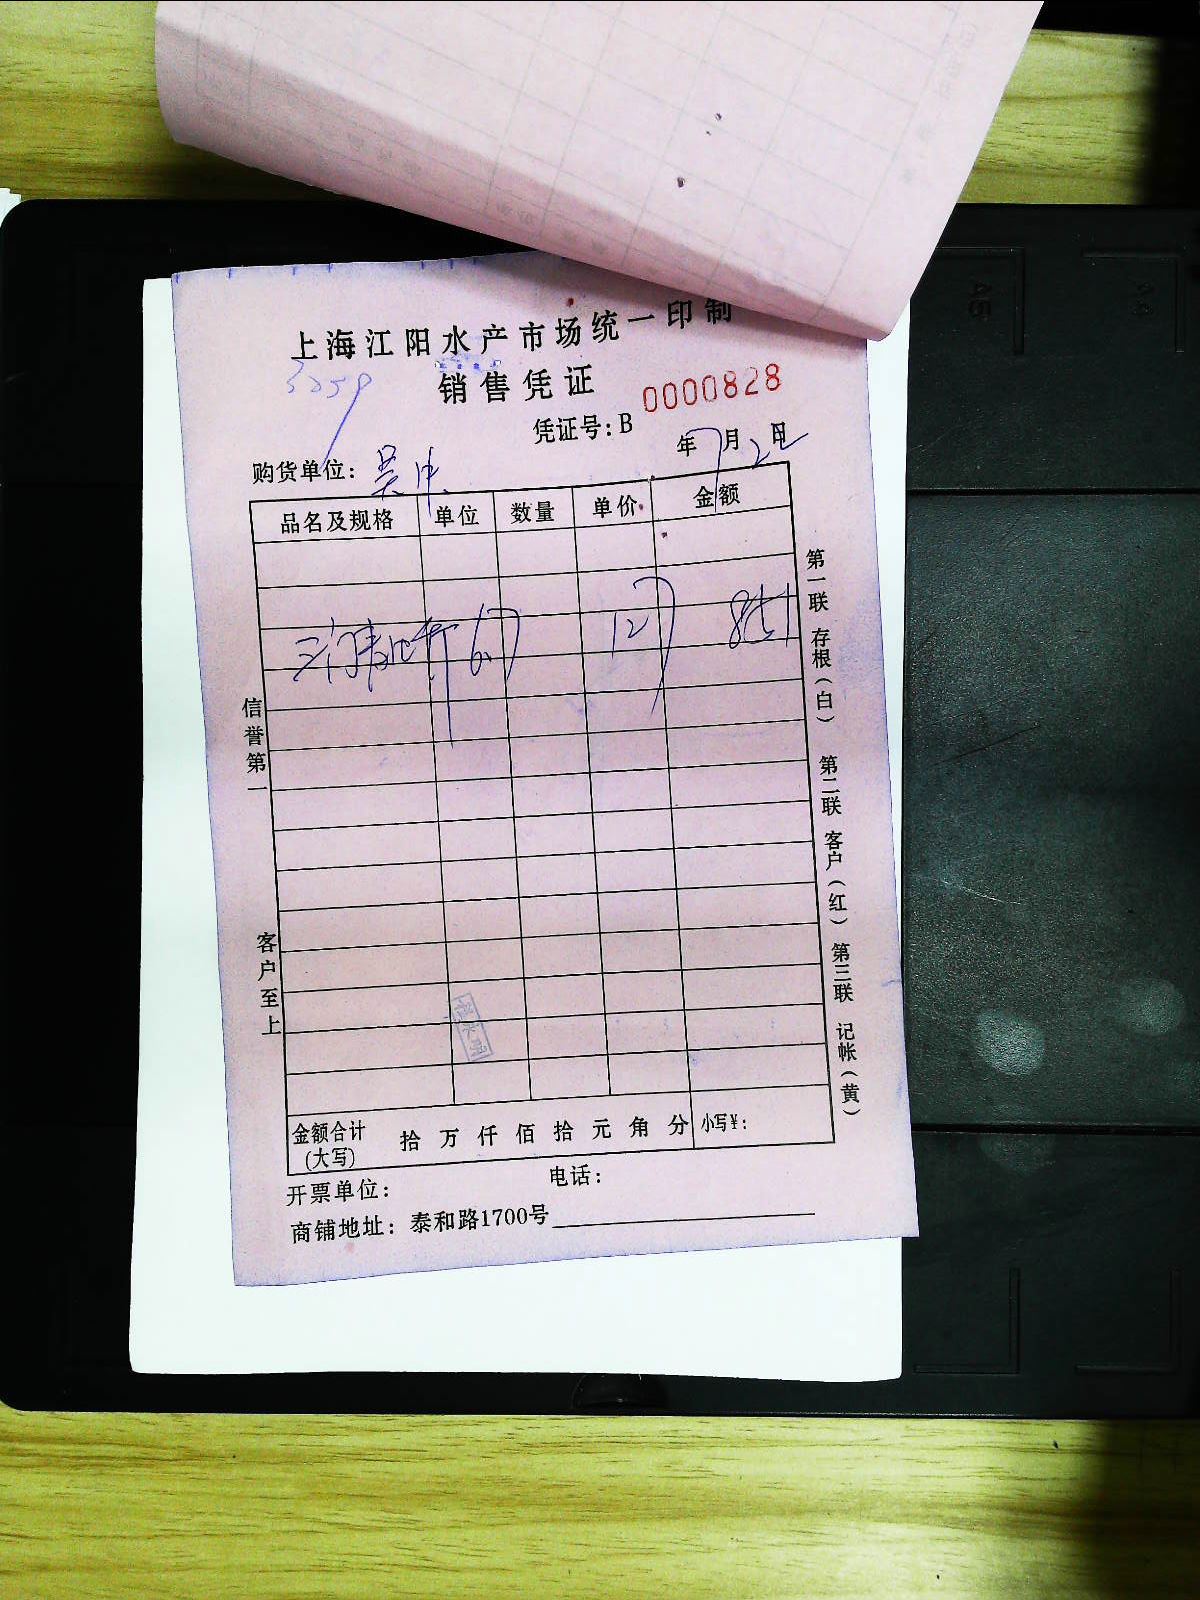 上海江阳水产市场统一印制
销售凭证
凭证号：B 0000828
购货单位：吴 年7月22日
品名及规格 单位 数量 单价 金额
三门青 6.7 127 851
金额合计(大写) 拾 万 仟 佰 拾 元 角 分 小写¥：
开票单位： 电话：
商铺地址：泰和路1700号
信誉第一
客户至上
第一联 存根（白）
第二联 客户（红）
第三联 记帐（黄）
A5